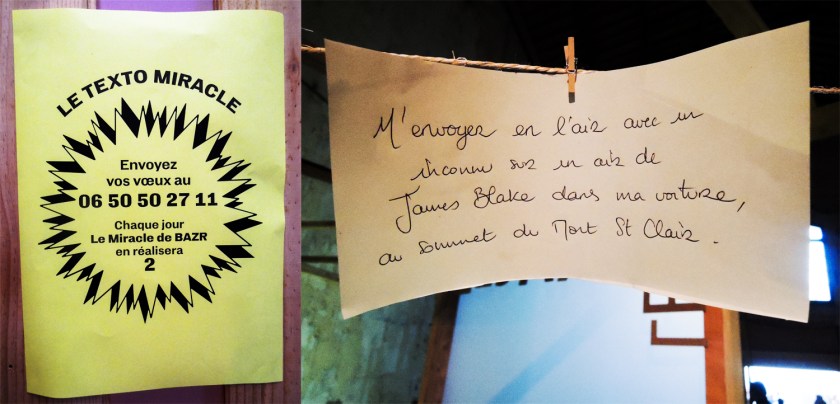 LE TEXTO MIRACLE
Envoyez
vos vœux au
06 50 50 27 11
Chaque jour
Le Miracle de BAZR
en réalisera
2
M'envoyer en l'air avec un
inconnu sur un air de
James Blake dans ma voiture,
au sommet du Mont St Clair.